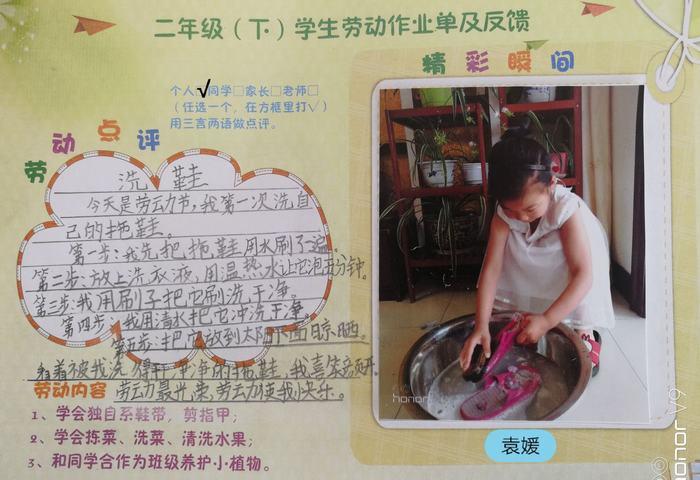 二年级（下）学生劳动作业单及反馈
精彩瞬间
个人√同学□家长□老师□
（任选一个，在方框里打√）
用三言两语做点评。
劳动点评
洗鞋
今天是劳动节，我第一次洗自
己的拖鞋。
第一步：我先把拖鞋用水刷了一遍。
第二步：放上洗衣液，用温热水让它泡五分钟。
第三步：我用刷子把它刷洗干净。
第四步：我用清水把它冲洗干净。
第五步：把它放到太阳下面晾晒。
看着被我洗得干干净净的拖鞋，我喜笑颜开。
劳动最光荣，劳动使我快乐。
劳动内容
1、学会独自系鞋带，剪指甲；
2、学会拣菜、洗菜、清洗水果；
3、和同学合作为班级养护小植物。
honor
袁媛
honor V9